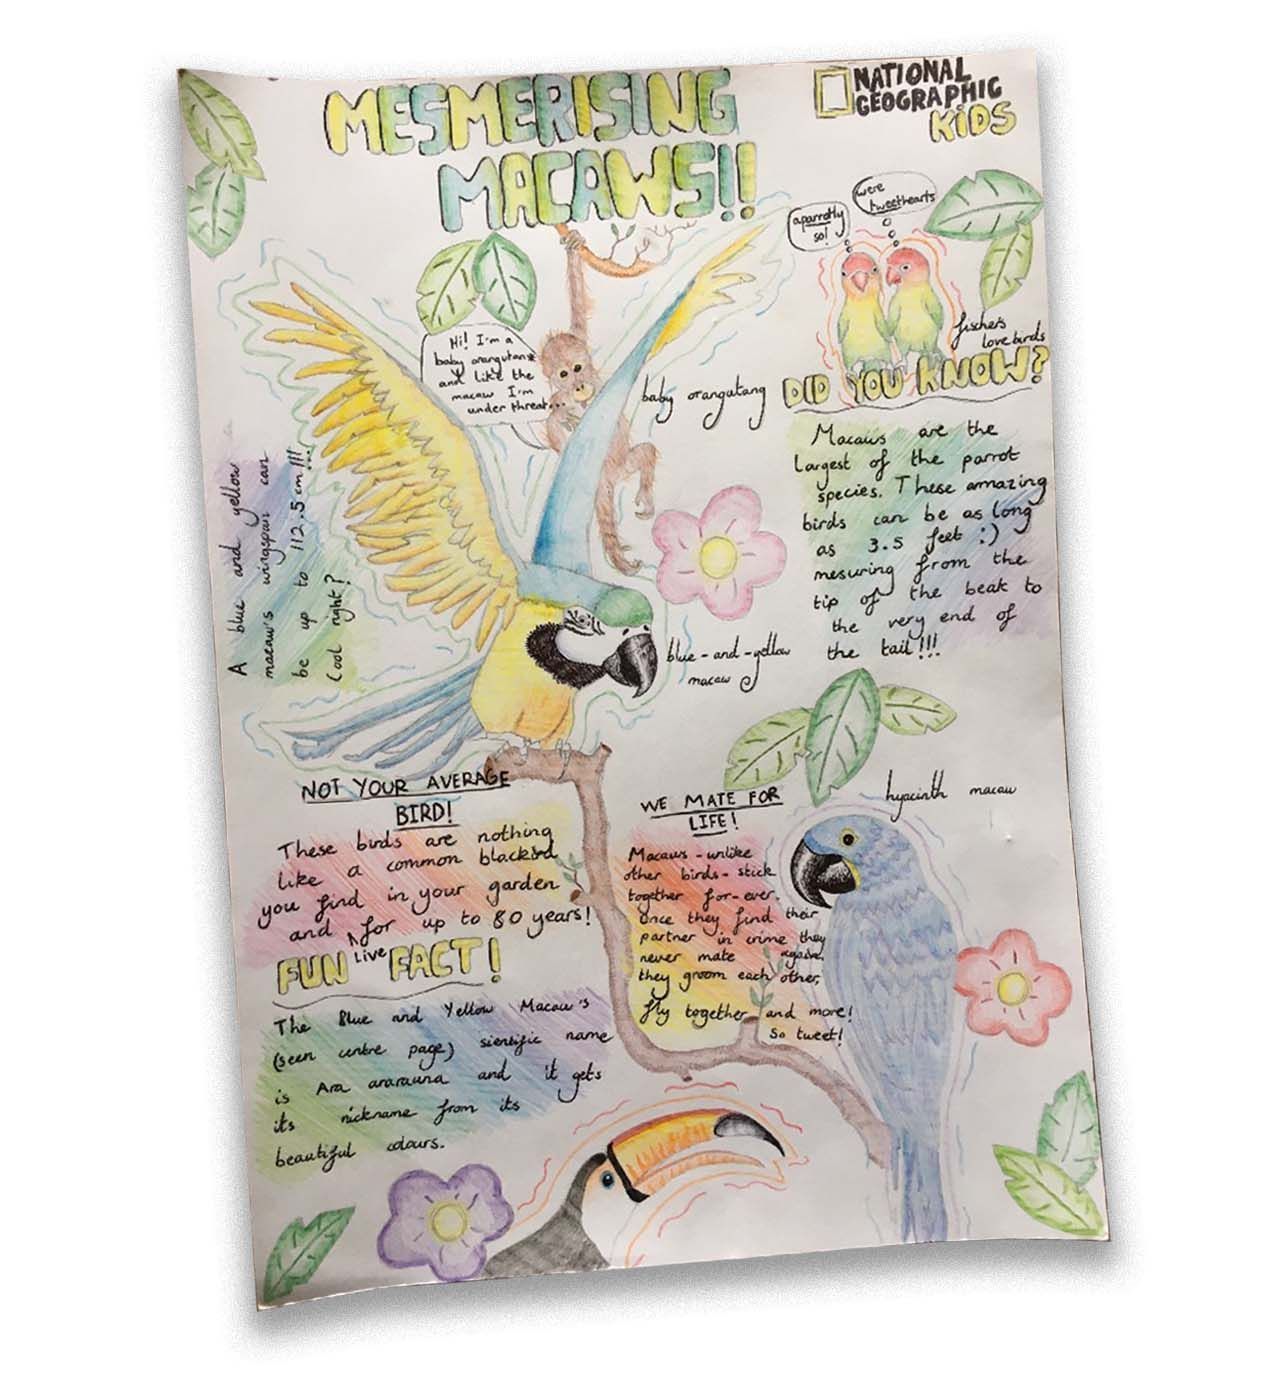 MESMERISING
MACAWS!!
NATIONAL
GEOGRAPHIC
KiDS
aparrotly
so!
were
tweethearts
fischers
love birds
Hi! I'm a
baby orangutang
and like the
macaw I'm
under threat...
baby orangutang
DID YOU KNOW?
Macaws are the
largest of the parrot
species. These amazing
birds can be as long
as 3.5 feet :)
mesuring from the
tip of the beak to
the very end of
the tail!!!
A blue and yellow
macaw's wingspan can
be up to 112.5cm!!!
Cool right?
blue-and-yellow
macaw
NOT YOUR AVERAGE
BIRD!
These birds are nothing
like a common blackbird
you find in your garden
and live for up to 80 years!
FUN FACT!
The Blue and Yellow Macaw's
(seen centre page) sientific name
is Ara ararauna and it gets
its nickname from its
beautiful colours.
WE MATE FOR
LIFE!
Macaws - unlike
other birds - stick
together for-ever.
Once they find their
partner in crime they
never mate again.
they groom each other,
fly together and more!
So tweet!
hyacinth macaw